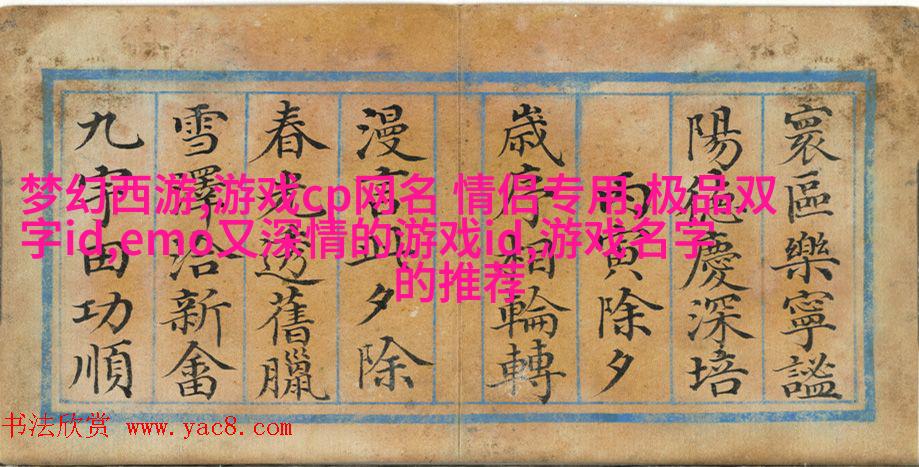 梦幻西游,游戏cp网名 情侣专用,极品双
字id,emo又深情的游戏id,游戏名字
的推荐
寰區樂寧謐
陽德慶深培
丙寅除夕
歲序相輪轉
漫言此夕除
春光透舊臘
雪澤洽新畬
九田功順
书法欣赏 www.yac8.com